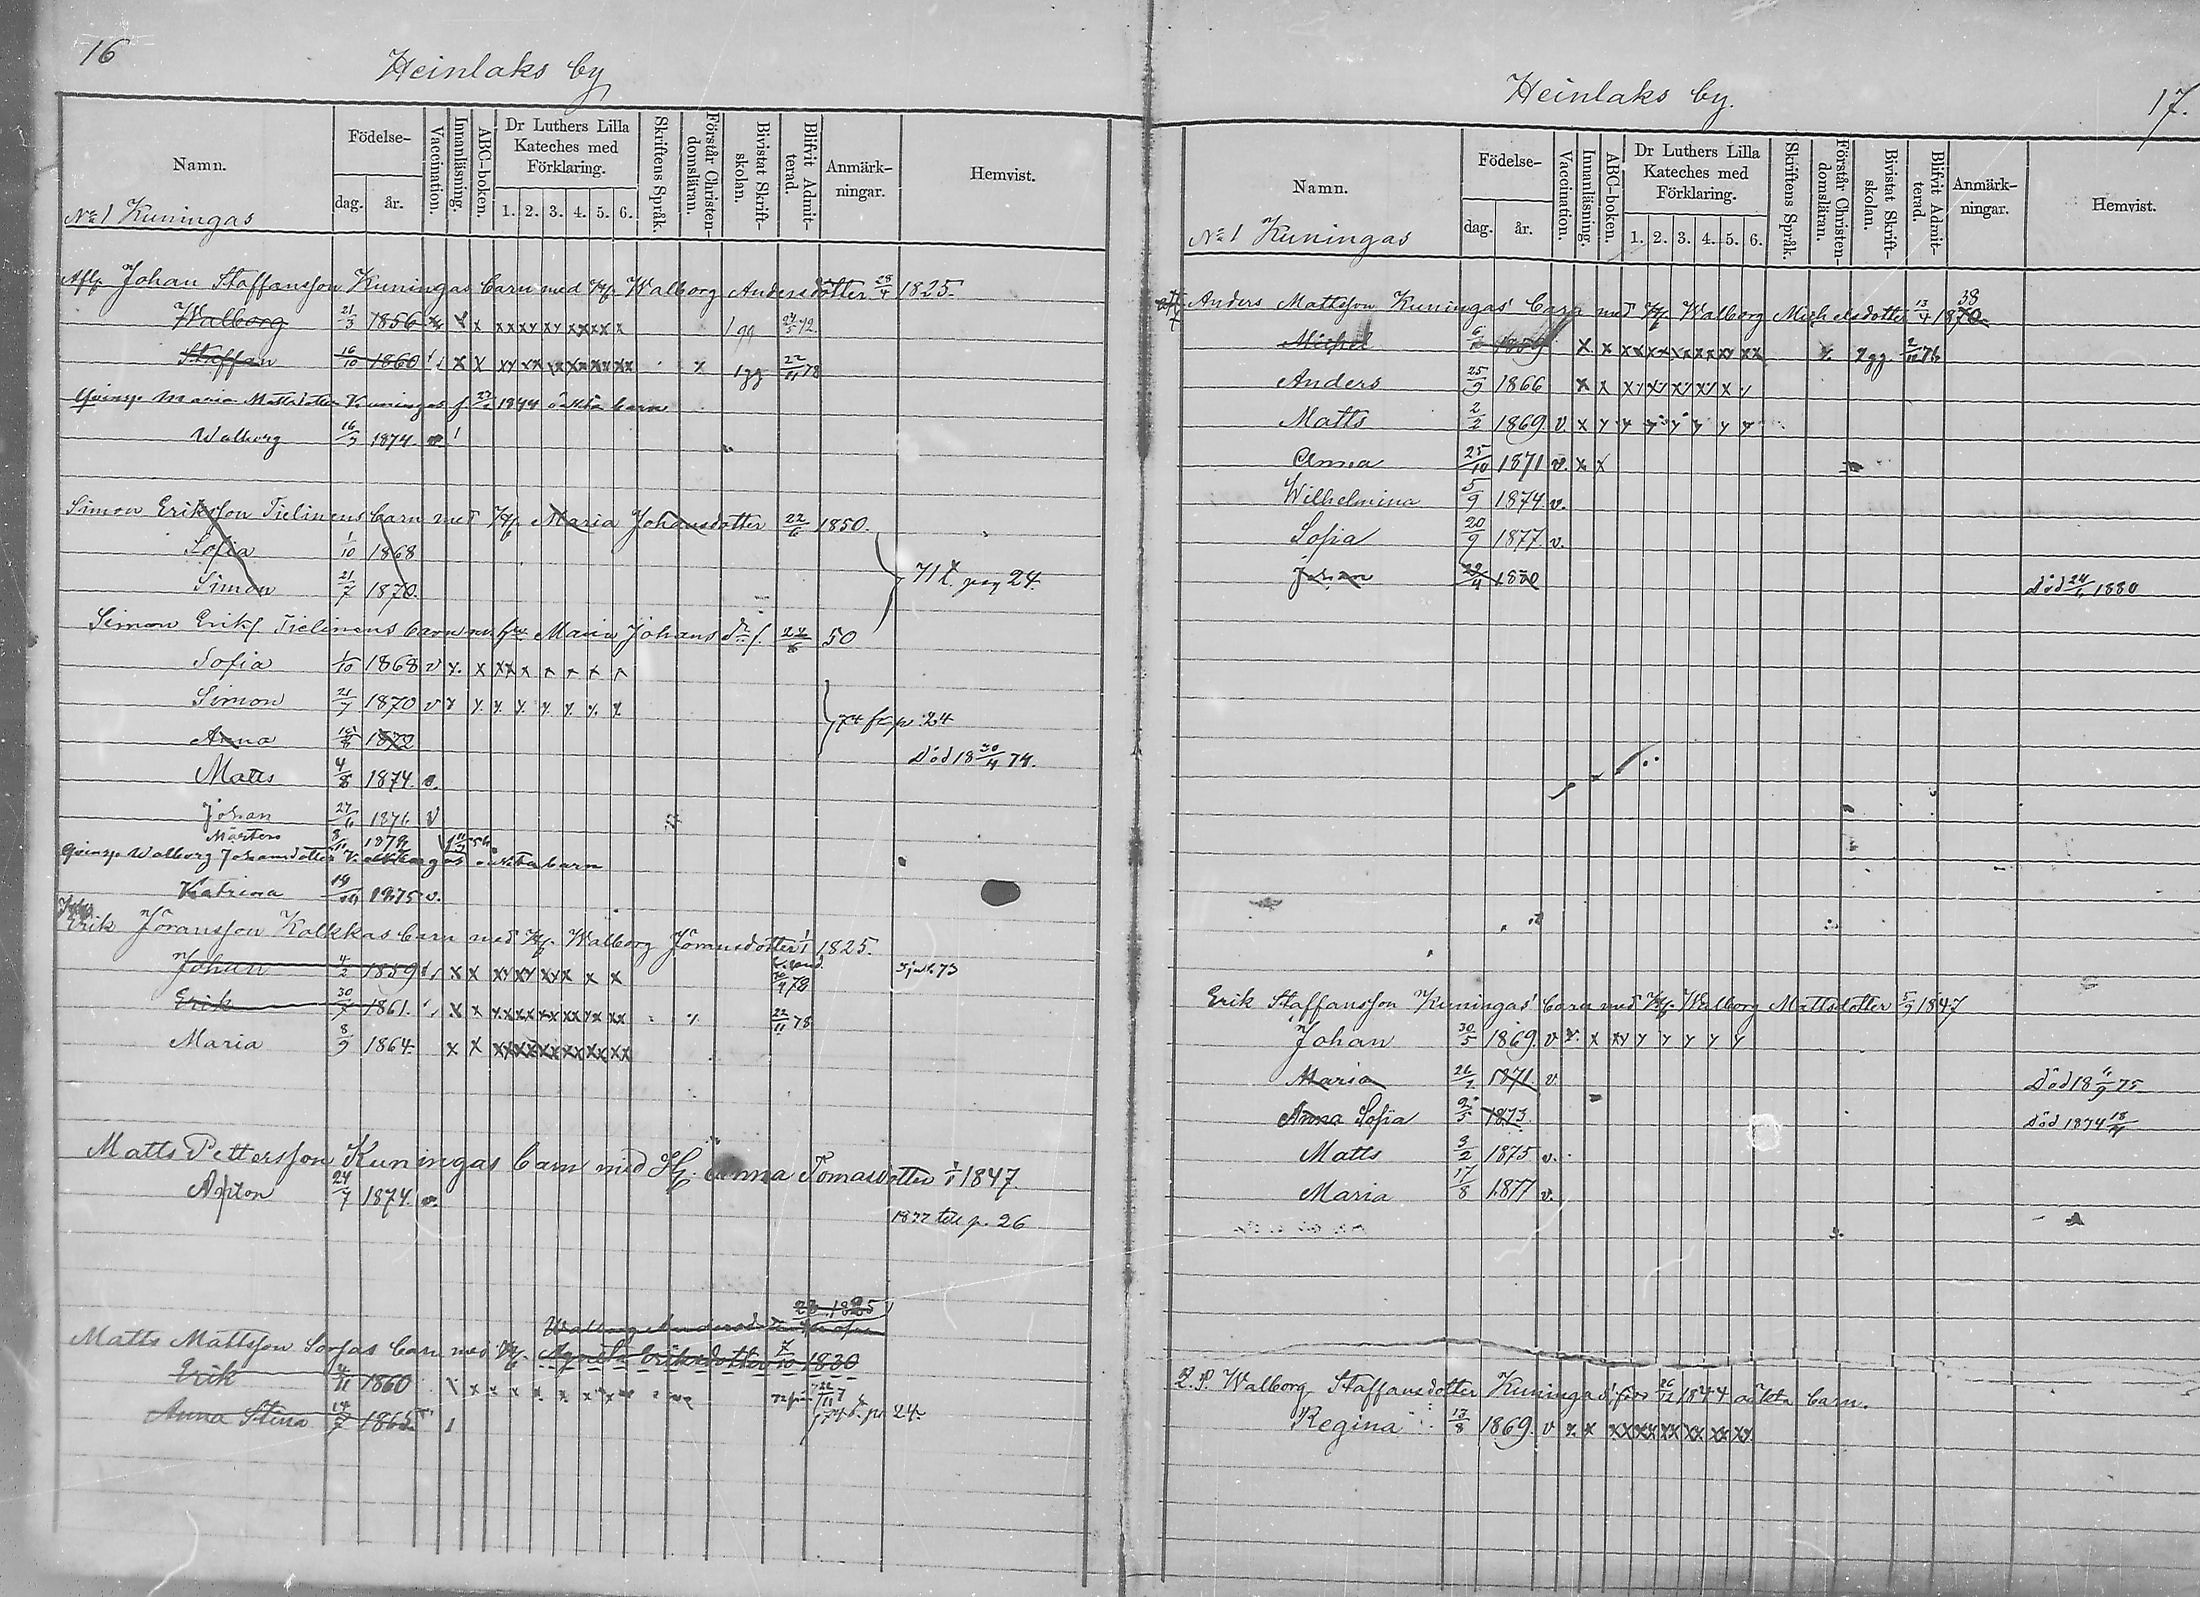 16
Heinlaks by
Namn.
Födelse-
dag.
år.
Vaccination.
Innanläsning.
ABC-boken.
Dr Luthers Lilla Kateches med Förklaring.
1. 2. 3. 4. 5. 6.
Skriftens Språk.
Förstår Christen-domsläran.
Bivistat Skrift-skolan.
Blifvit Admit-terad.
Anmärk-ningar.
Hemvist.
No 1 Kuningas
Johan Staffansson Kuningas barn med Walborg Andersdotter 28/4 1825.
Walborg 21/3 1856 x x x x x x x x x x 1 gg 24/5 72.
Staffan 16/10 1860 x x x x x x x x x x 1 gg 22/11 78
Maria Mattsdotter Kuningas f 1844 oäkta barn
Walborg 16/3 1874 v
Simon Eriksson Tielinens barn med Maria Johansdotter 22/6 1850.
Sofia 1/10 1868
Simon 21/7 1870
71 t. pag 24.
Simon Eriks Tielinens barn m Maria Johans dr f. 22/6 50
Sofia 1/10 1868 v x x x x
Simon 21/7 1870 v y y y y y y y y
74 fr p 24
Anna 1872
Död 18 30/4 74.
Matts 4/8 1874. v.
Johan 27/6 1871. v
Mårten 8/11 1879
Walborg Johansdotter oäkta barn
Katrina 1875 v.
Erik Jöransson Kalkkas barn med Walborg Jöransdotter 1/1 1825.
Johan 4/2 1859 x x x x x x x x 78
Erik 30/7 1861 x x x x x x x x 22/11 78
Maria 8/9 1864 x x x x x x x x
Matts Pettersson Kuningas barn med Anna Tomasdotter 1/1 1847.
Apiton 24/7 1874. v.
1877 till p. 26
Matts Mattsson Sorsas barn med Agneta Eriksdotter 7/10 1830
Erik 4/11 1860 x x x x x x x x
Anna Stina 14/7 1865
p. 24
Heinlaks by.
17.
Namn.
Födelse-
dag.
år.
Vaccination.
Innanläsning.
ABC-boken.
Dr Luthers Lilla Kateches med Förklaring.
1. 2. 3. 4. 5. 6.
Skriftens Språk.
Förstår Christen-domsläran.
Bivistat Skrift-skolan.
Blifvit Admit-terad.
Anmärk-ningar.
Hemvist.
No 1 Kuningas
Anders Mattsson Kuningas' barn med Walborg Michelsdotter 13/4 1870 38
Michel 1859 x x x x x x x x 2 gg. 76
Anders 25/9 1866 x x x x x x x
Matts 2/2 1869 v x y y y y y y y
Anna 25/10 1871 v. x x
Wilhelmina 5/9 1874 v.
Sofia 20/9 1877. v.
Johan 1880
Död 1880
Erik Staffansson Kuningas' barn med Walborg Mattsdotter 5/9 1847
Johan 30/5 1869. v x x xy y y y y y
Maria 1871. v
Död 18 75
Anna Sofia 1873.
Död 1874
Matts 3/2 1875 v.
Maria 17/8 1877 v.
Walborg Staffansdotter Kuningas' 1844 oäkta barn.
Regina 13/8 1869. v x x xx xx xx xx xx xx